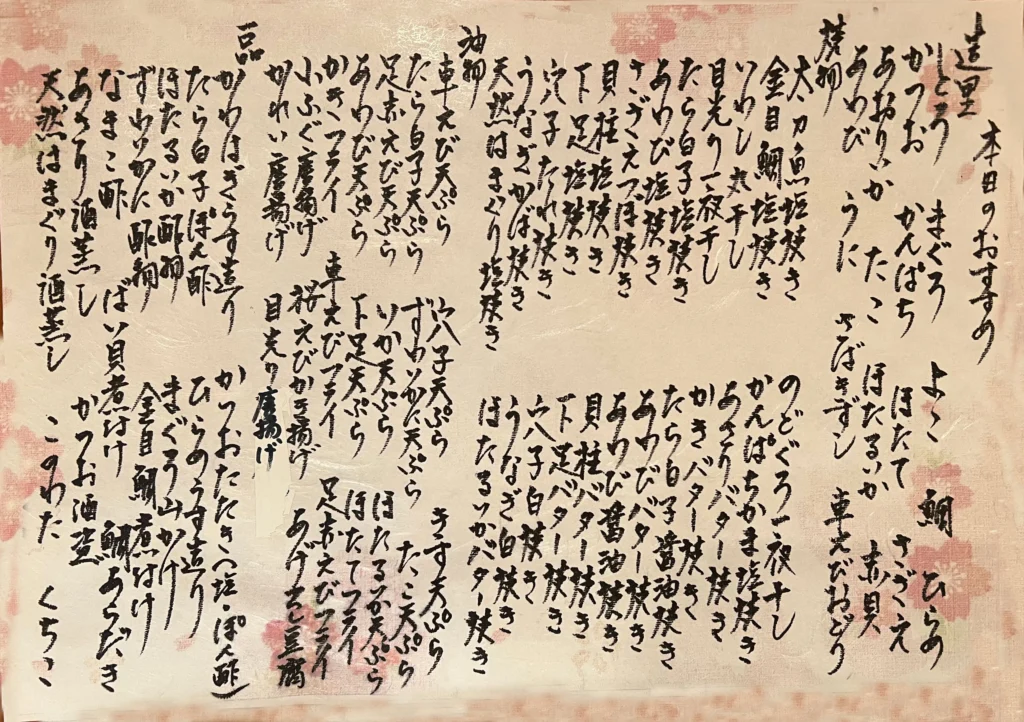 本日のおすすめ
造里
しどろ まぐろ よこ 鯛 ひらめ
かつお かんぱち ほたて さざえ
あおりいか たこ ほたるいか 赤貝
あわび うに さばきずし 車えびおどり
焼物
太刀魚塩焼き のどぐろ一夜干し
金目鯛塩焼き かんぱちかま塩焼き
いわし丸干し あさりバター焼き
目光り一夜干し かきバター焼き
たら白子塩焼き たら白子醤油焼き
あわび塩焼き あわびバター焼き
さざえつぼ焼き あわび醤油焼き
貝柱塩焼き 貝柱バター焼き
下足塩焼き 下足バター焼き
穴子たれ焼き 穴子白焼き
うなぎかば焼き うなぎ白焼き
天然はまぐり塩焼き ほたるいかバター焼き
油物
車えび天ぷら 穴子天ぷら きす天ぷら
たら白子天ぷら ずわいかに天ぷら たこ天ぷら
足赤えび天ぷら いか天ぷら ほたるいか天ぷら
あわび天ぷら 下足天ぷら ほたてフライ
かきフライ 車えびフライ 足赤えびフライ
小ふぐ唐揚げ 桜えびかき揚げ あげだし豆腐
かれい唐揚げ 目光り唐揚げ
一品
かわはぎうす造り かつおたたき（塩・ぽん酢）
たら白子ぽん酢 ひらめうす造り
ほたるいか酢物 まぐろ山かけ
ずわいかに酢物 金目鯛煮付け
なまこ酢 ばい貝煮付け 鯛あらだき
あさり酒蒸し かつお酒盗
天然はまぐり酒蒸し このわた くちこ